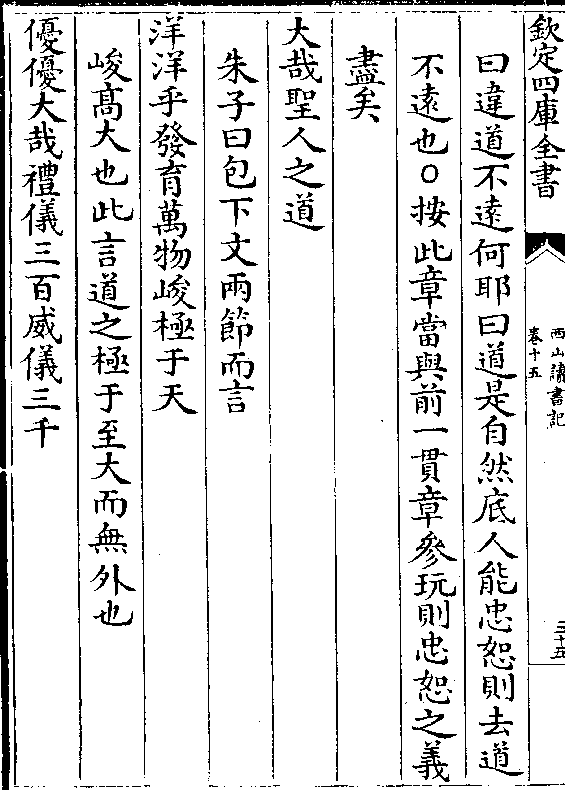 欽定四庫全書
西山讀書記
卷十五
三十五
曰違道不遠何耶曰道是自然底人能忠恕則去道
不遠也○按此章當與前一貫章參玩則忠恕之義
盡矣
大哉聖人之道
朱子曰包下文兩節而言
洋洋乎發育萬物峻極于天
峻髙大也此言道之極于至大而無外也
優優大哉禮儀三百威儀三千